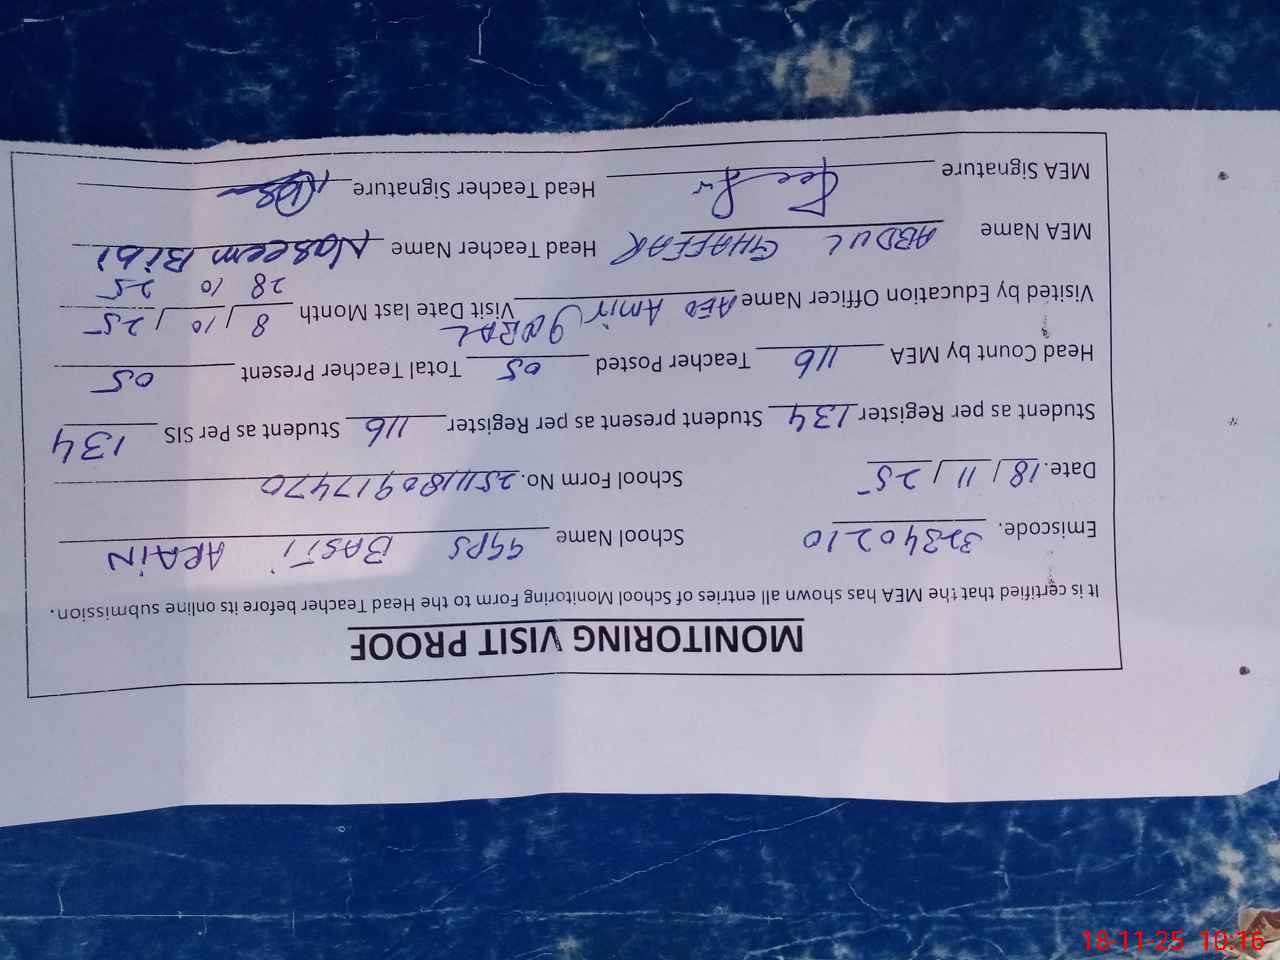 MONITORING VISIT PROOF
It is certified that the MEA has shown all entries of School Monitoring Form to the Head Teacher before its online submission.
Emiscode. 32340210 School Name GGPS BASTI ARAIN
Date. 18 / 11 / 25 School Form No. 2511180917470
Student as per Register 134 Student present as per Register 116 Student as Per SIS 134
Head Count by MEA 116 Teacher Posted 05 Total Teacher Present 05
Visited by Education Officer Name AEO Amir Visit Date last Month 8 / 10 / 25
28 10 25
MEA Name ABDUL GHAFFAR Head Teacher Name Naseem Bibi
MEA Signature Head Teacher Signature
18-11-25 10:16